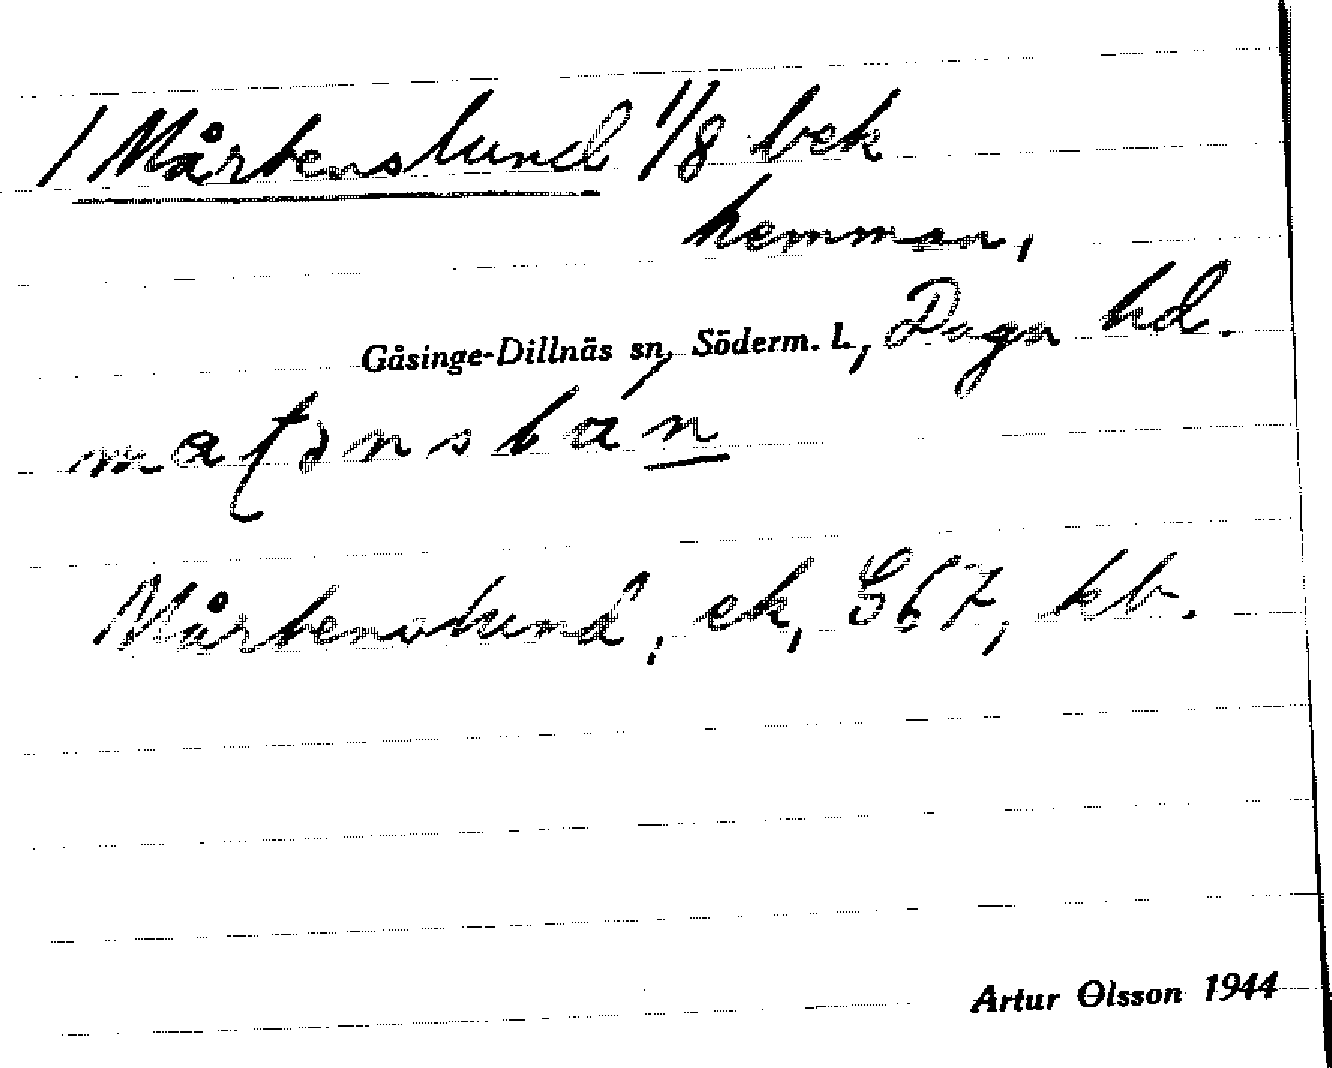 / Mårtenslund 1/8 bek
hemman,
Gåsinge-Dillnäs sn, Söderm. l., Daga hd.
Mårtenslund, ek, G67, kb.
Artur Olsson 1944